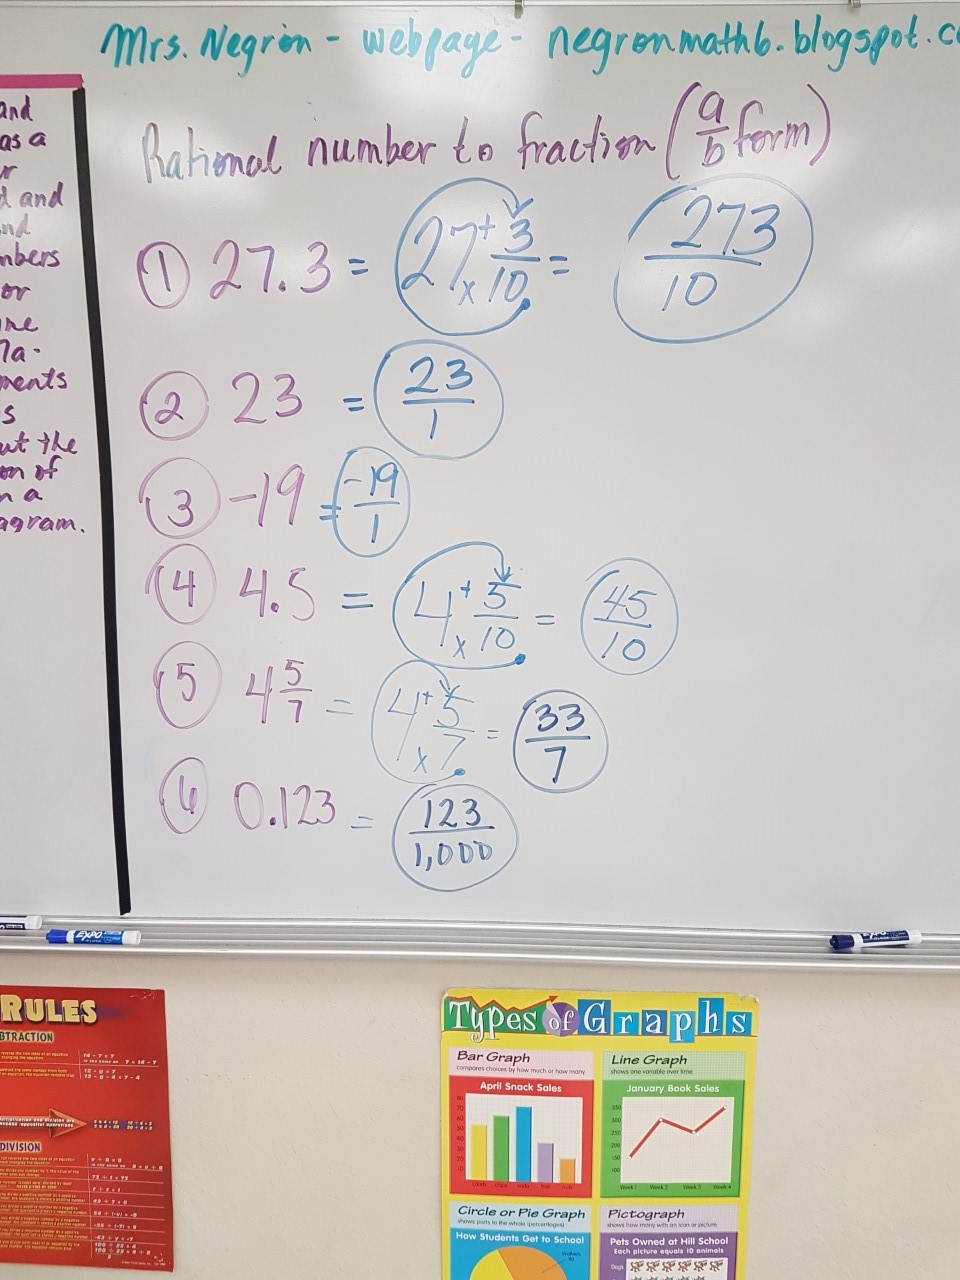 Mrs. Negron - webpage - negronmath6.blogspot.c
and
as a
d and
nd
mbers
or
ments
s
ut the
on of
n a
agram.
Rational number to fraction (a/b form)
① 27.3 = 27 + 3/10 x = 273/10
② 23 = 23/1
③ -19 = -19/1
④ 4.5 = 4 + 5/10 x = 45/10
⑤ 4 5/7 = 4 + 5/7 x = 33/7
⑥ 0.123 = 123/1,000
EXPO
EXPO
RULES
BTRACTION
DIVISION
Types of Graphs
Bar Graph
compares choices by how much or how many
April Snack Sales
80
70
60
50
40
30
20
10
Line Graph
shows one variable over time
January Book Sales
350
300
250
200
150
100
Week 1 Week 2 Week 3 Week 4
Circle or Pie Graph
shows parts to the whole (percentages)
How Students Get to School
Walkers
Pictograph
shows how many with an icon or picture
Pets Owned at Hill School
Each picture equals 10 animals
Dogs